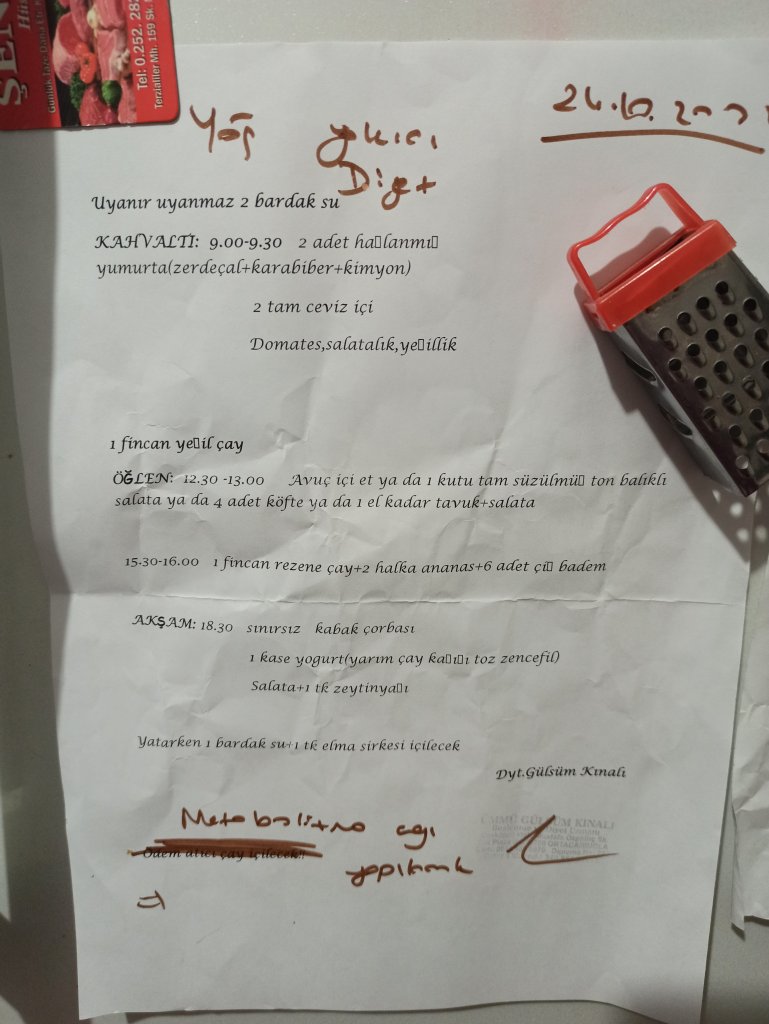 ŞEN
Günlük Taze Dana Et, K
Tel: 0.252. 282
Terzialiler Mh. 159 Sk.
Yağ yakıcı
Diyet
Uyanır uyanmaz 2 bardak su
KAHVALTİ: 9.00-9.30 2 adet ha▯lanmı▯
yumurta(zerdeçal+karabiber+kimyon)
2 tam ceviz içi
Domates,salatalık,ye▯illik
1 fincan ye▯il çay
ÖĞLEN: 12.30 -13.00 Avuç içi et ya da 1 kutu tam süzülmü▯ ton balıklı
salata ya da 4 adet köfte ya da 1 el kadar tavuk+salata
15.30-16.00 1 fincan rezene çay+2 halka ananas+6 adet çi▯ badem
AKŞAM: 18.30 sınırsız kabak çorbası
1 kase yogurt(yarım çay ka▯ı▯ı toz zencefil)
Salata+1 tk zeytinya▯ı
Yatarken 1 bardak su+1 tk elma sirkesi içilecek
Dyt.Gülsüm Kınalı
ÜMMÜ GÜLSÜM KINALI
Metabolizma
Ödem atıcı çay içilecek!